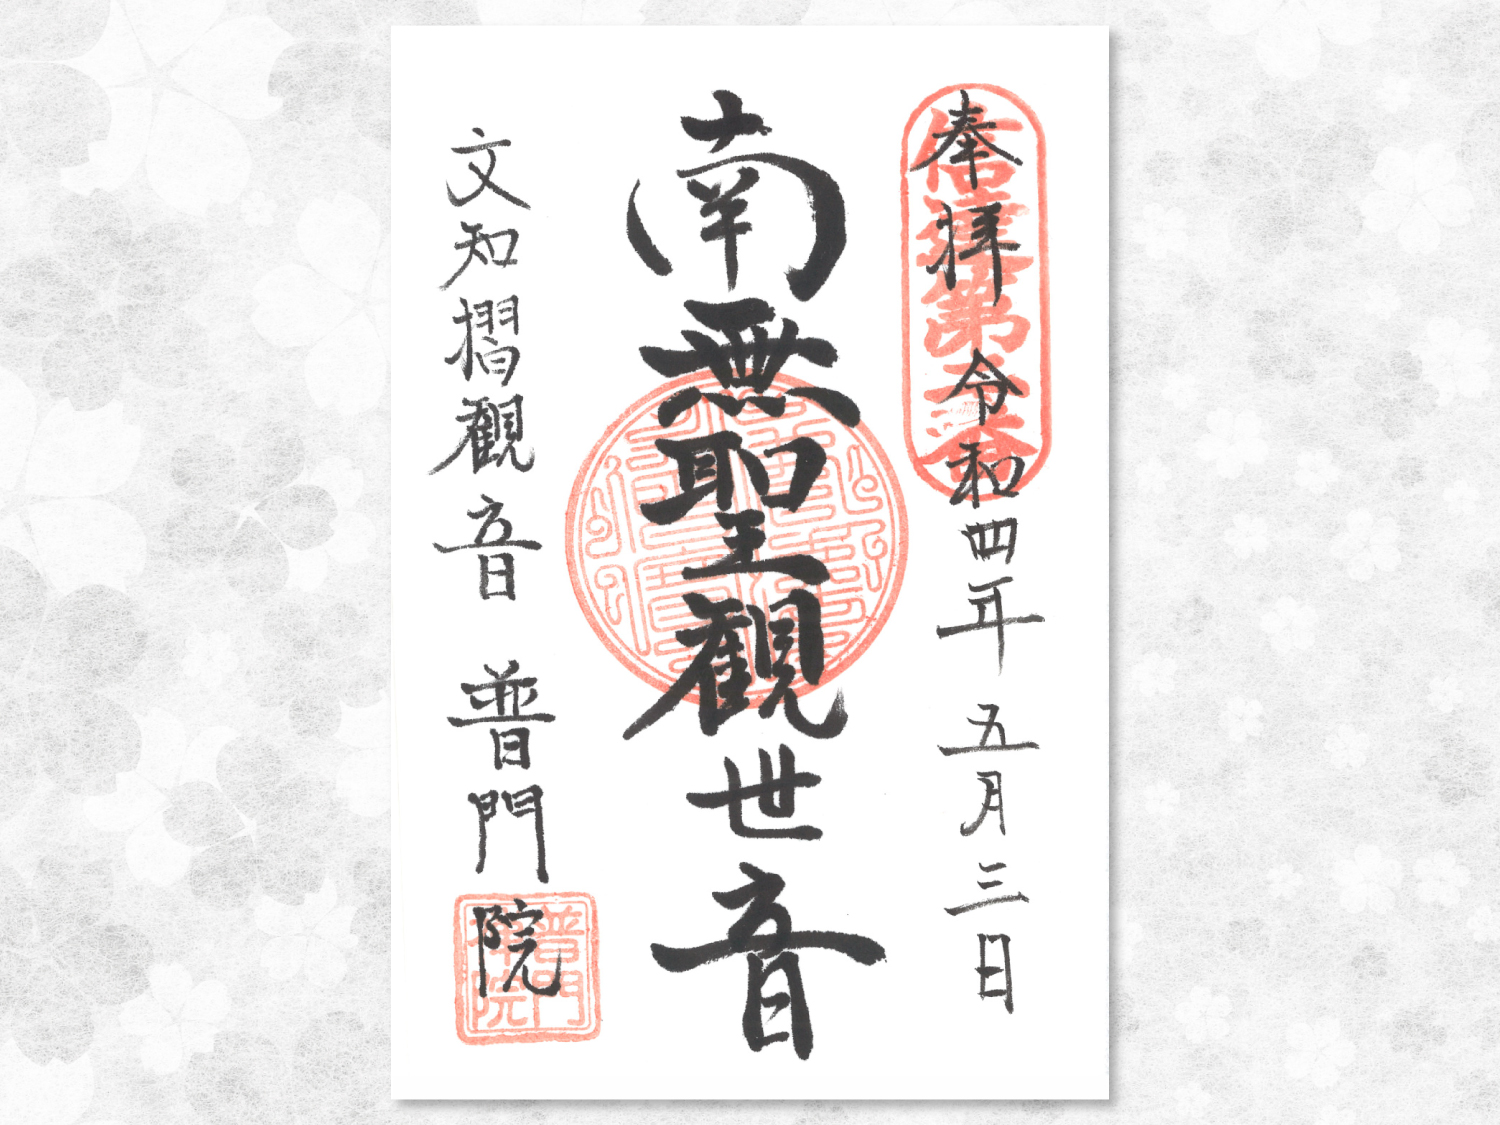 奉拝 令和四年 五月三日
南無聖観世音
文知摺観音 普門院
信達第
普門
院